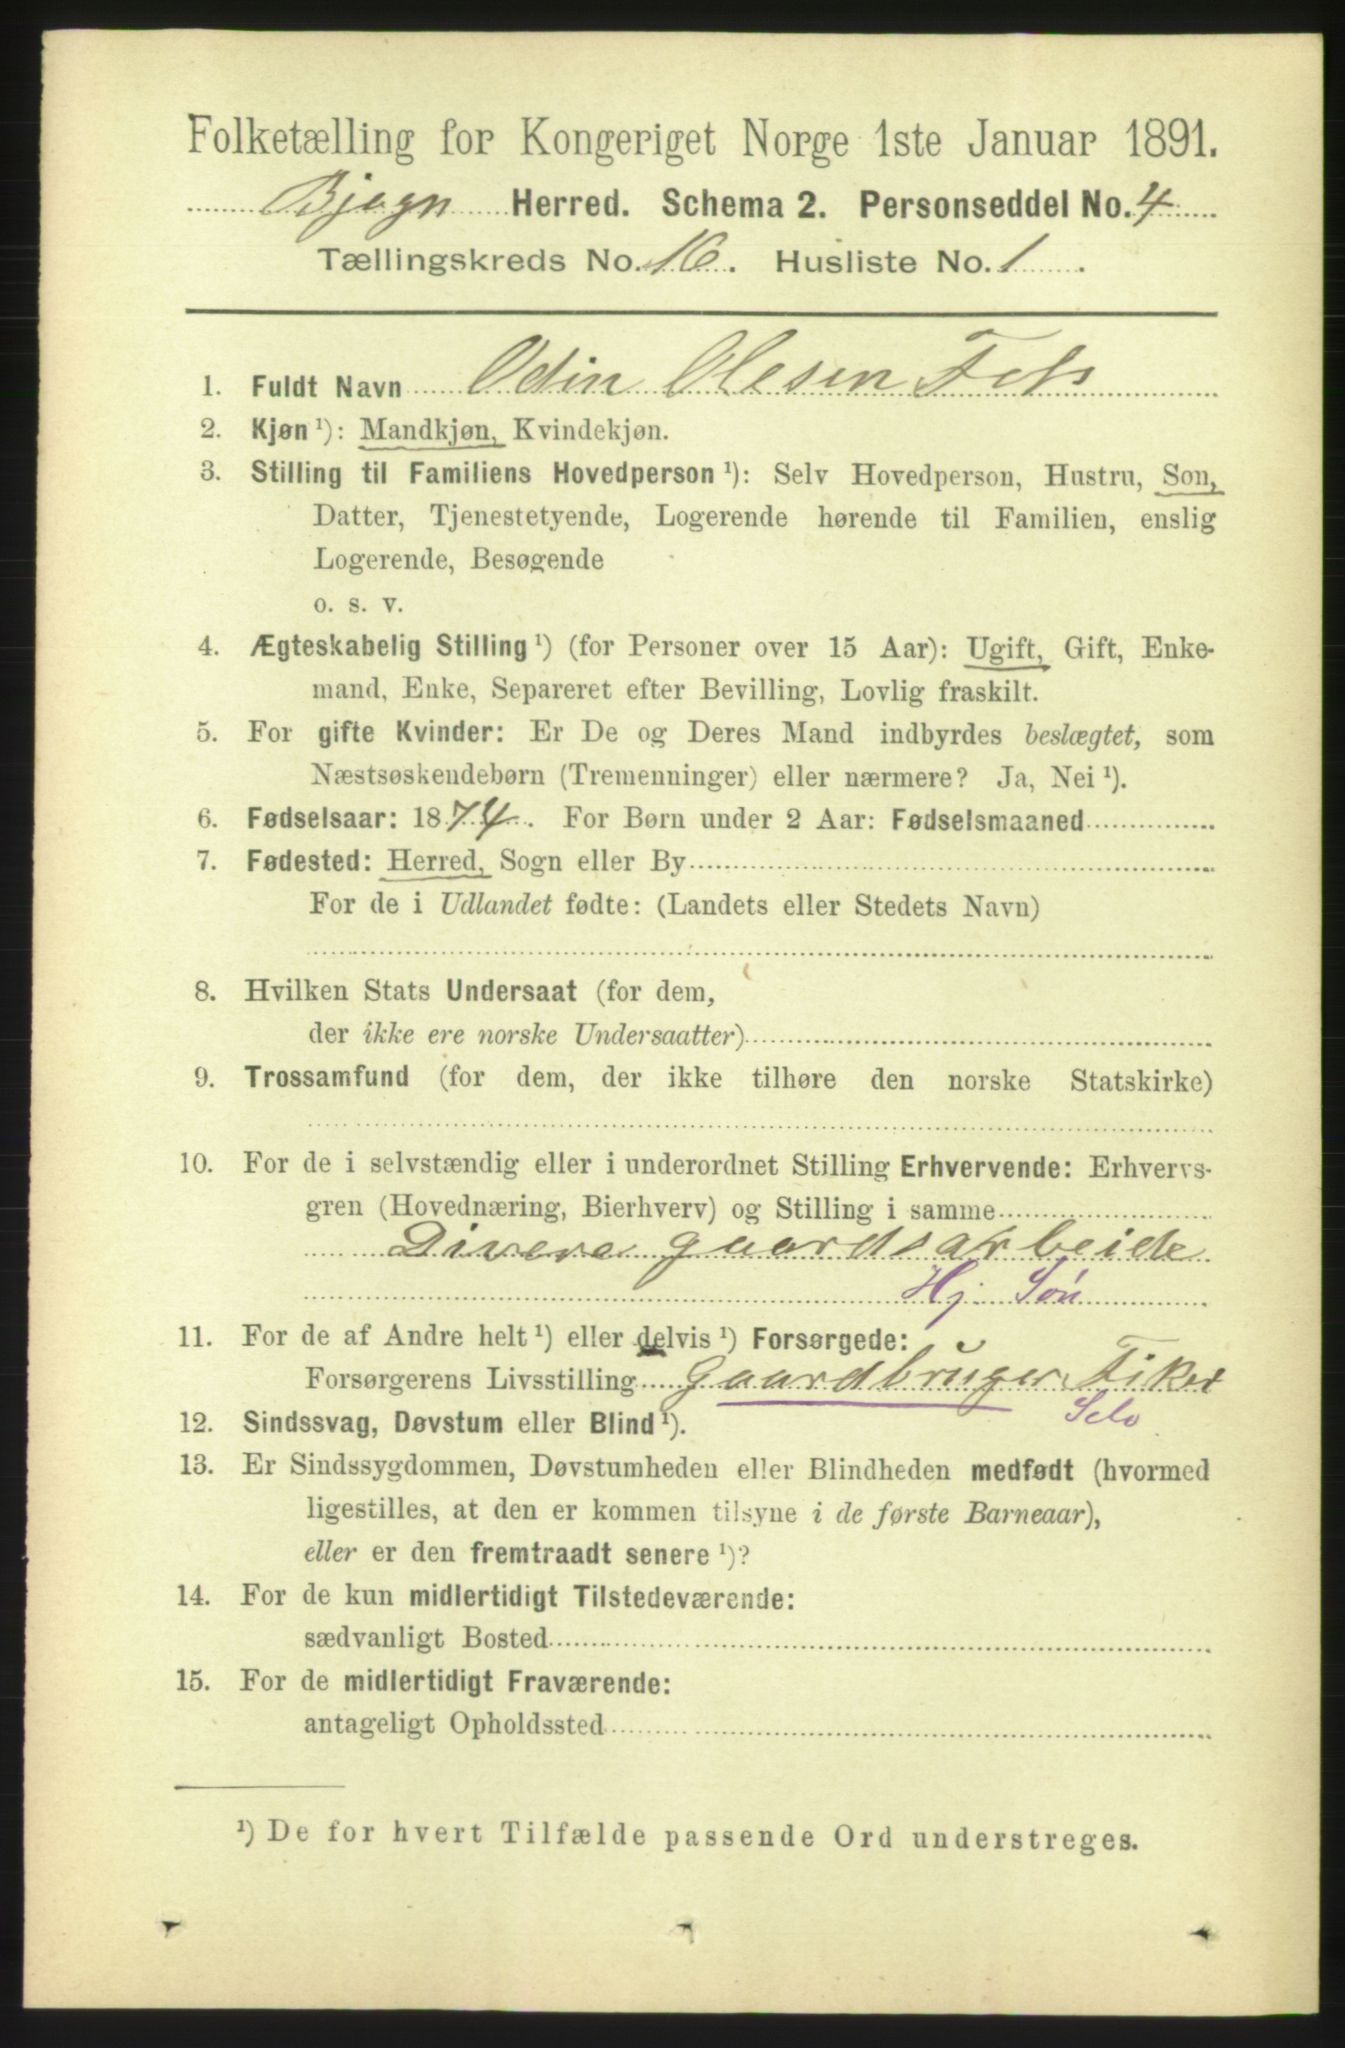 Folketælling for Kongeriget Norge 1ste Januar 1891.
Bjugn Herred. Schema 2. Personseddel No. 4
Tællingskreds No. 16. Husliste No. 1.
1. Fuldt Navn Odin Olesen
2. Kjøn ¹): Mandkjøn, Kvindekjøn.
3. Stilling til Familiens Hovedperson ¹): Selv Hovedperson, Hustru, Søn,
Datter, Tjenestetyende, Logerende hørende til Familien, enslig
Logerende, Besøgende
o. s. v.
4. Ægteskabelig Stilling ¹) (for Personer over 15 Aar): Ugift, Gift, Enke-
mand, Enke, Separeret efter Bevilling, Lovlig fraskilt.
5. For gifte Kvinder: Er De og Deres Mand indbyrdes beslægtet, som
Næstsøskendebørn (Tremenninger) eller nærmere? Ja, Nei ¹).
6. Fødselsaar: 1874. For Børn under 2 Aar: Fødselsmaaned
7. Fødested: Herred, Sogn eller By
For de i Udlandet fødte: (Landets eller Stedets Navn)
8. Hvilken Stats Undersaat (for dem,
der ikke ere norske Undersaatter)
9. Trossamfund (for dem, der ikke tilhøre den norske Statskirke)
10. For de i selvstændig eller i underordnet Stilling Erhvervende: Erhvervs-
gren (Hovednæring, Bierhverv) og Stilling i samme
Divere gaardsarbeide
Hj. Søn
11. For de af Andre helt ¹) eller delvis ¹) Forsørgede:
Forsørgerens Livsstilling Gaardbruger Fisker
Selv
12. Sindssvag, Døvstum eller Blind ¹).
13. Er Sindssygdommen, Døvstumheden eller Blindheden medfødt (hvormed
ligestilles, at den er kommen tilsyne i de første Barneaar),
eller er den fremtraadt senere ¹)?
14. For de kun midlertidigt Tilstedeværende:
sædvanligt Bosted
15. For de midlertidigt Fraværende:
antageligt Opholdssted
¹) De for hvert Tilfælde passende Ord understreges.